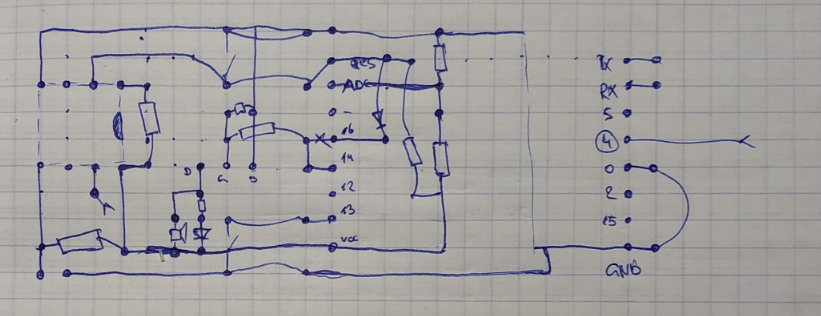 RES
ADC
16
14
12
13
VCC
D
G
S
TX
RX
5
4
0
2
15
GND